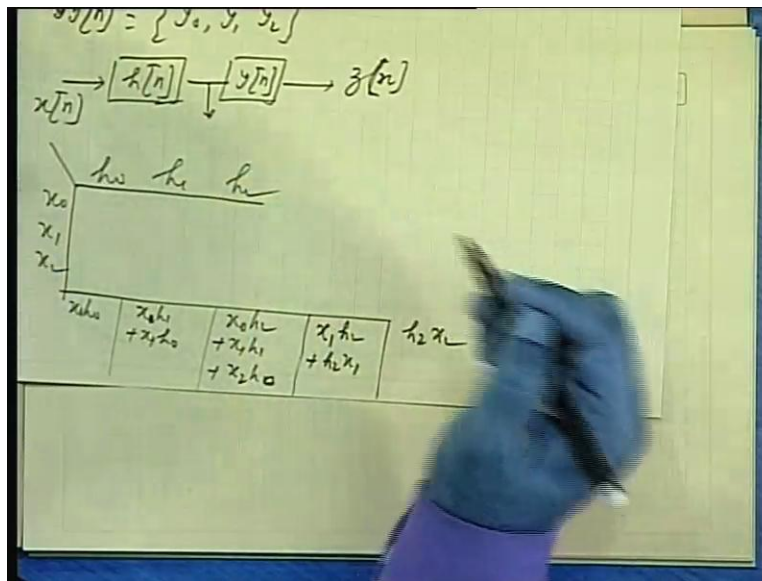 y[n] = {y₀, y₁, y₂}
x[n] → h[n] → y[n] → z[n]
h₀ h₁ h₂
x₀
x₁
x₂
x₀h₀ x₀h₁ x₀h₂ x₁h₂ h₂x₂
+x₁h₀ +x₁h₁ +h₂x₁
+x₂h₀